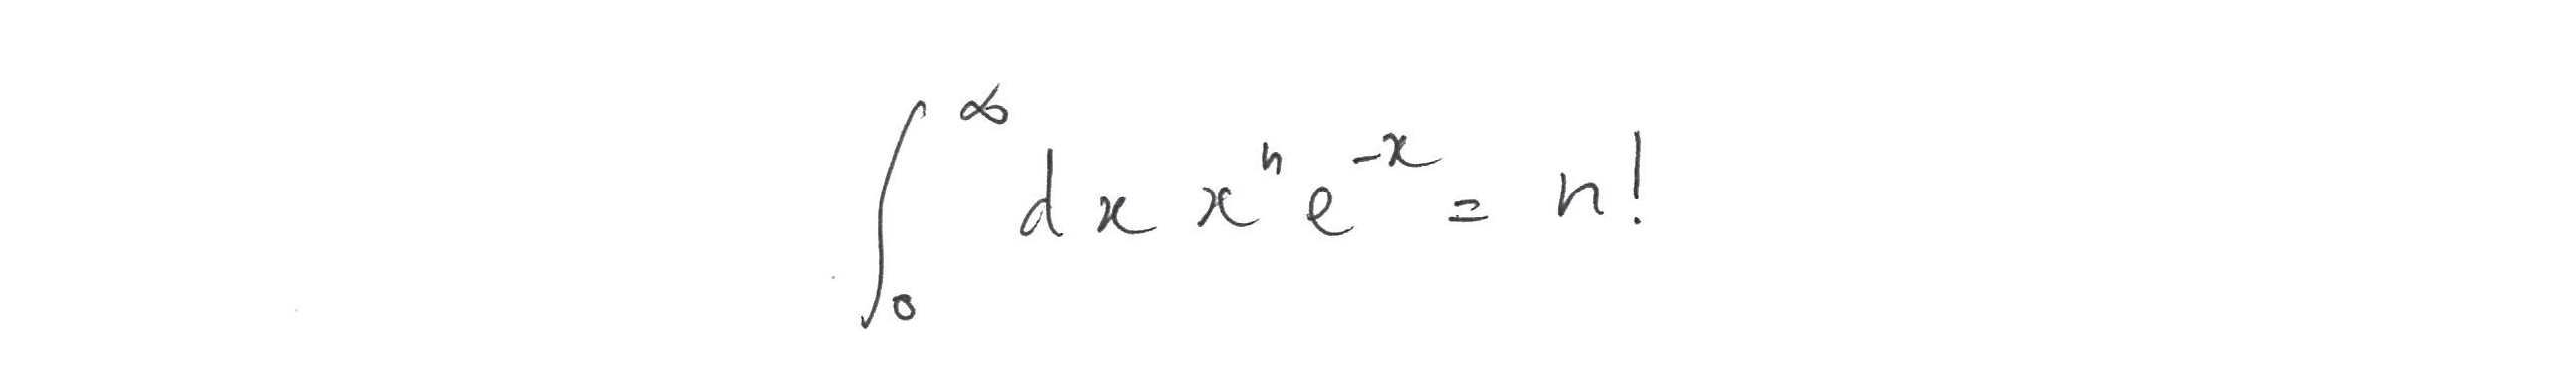 ∫₀^∞ dx xⁿ e⁻ˣ = n!